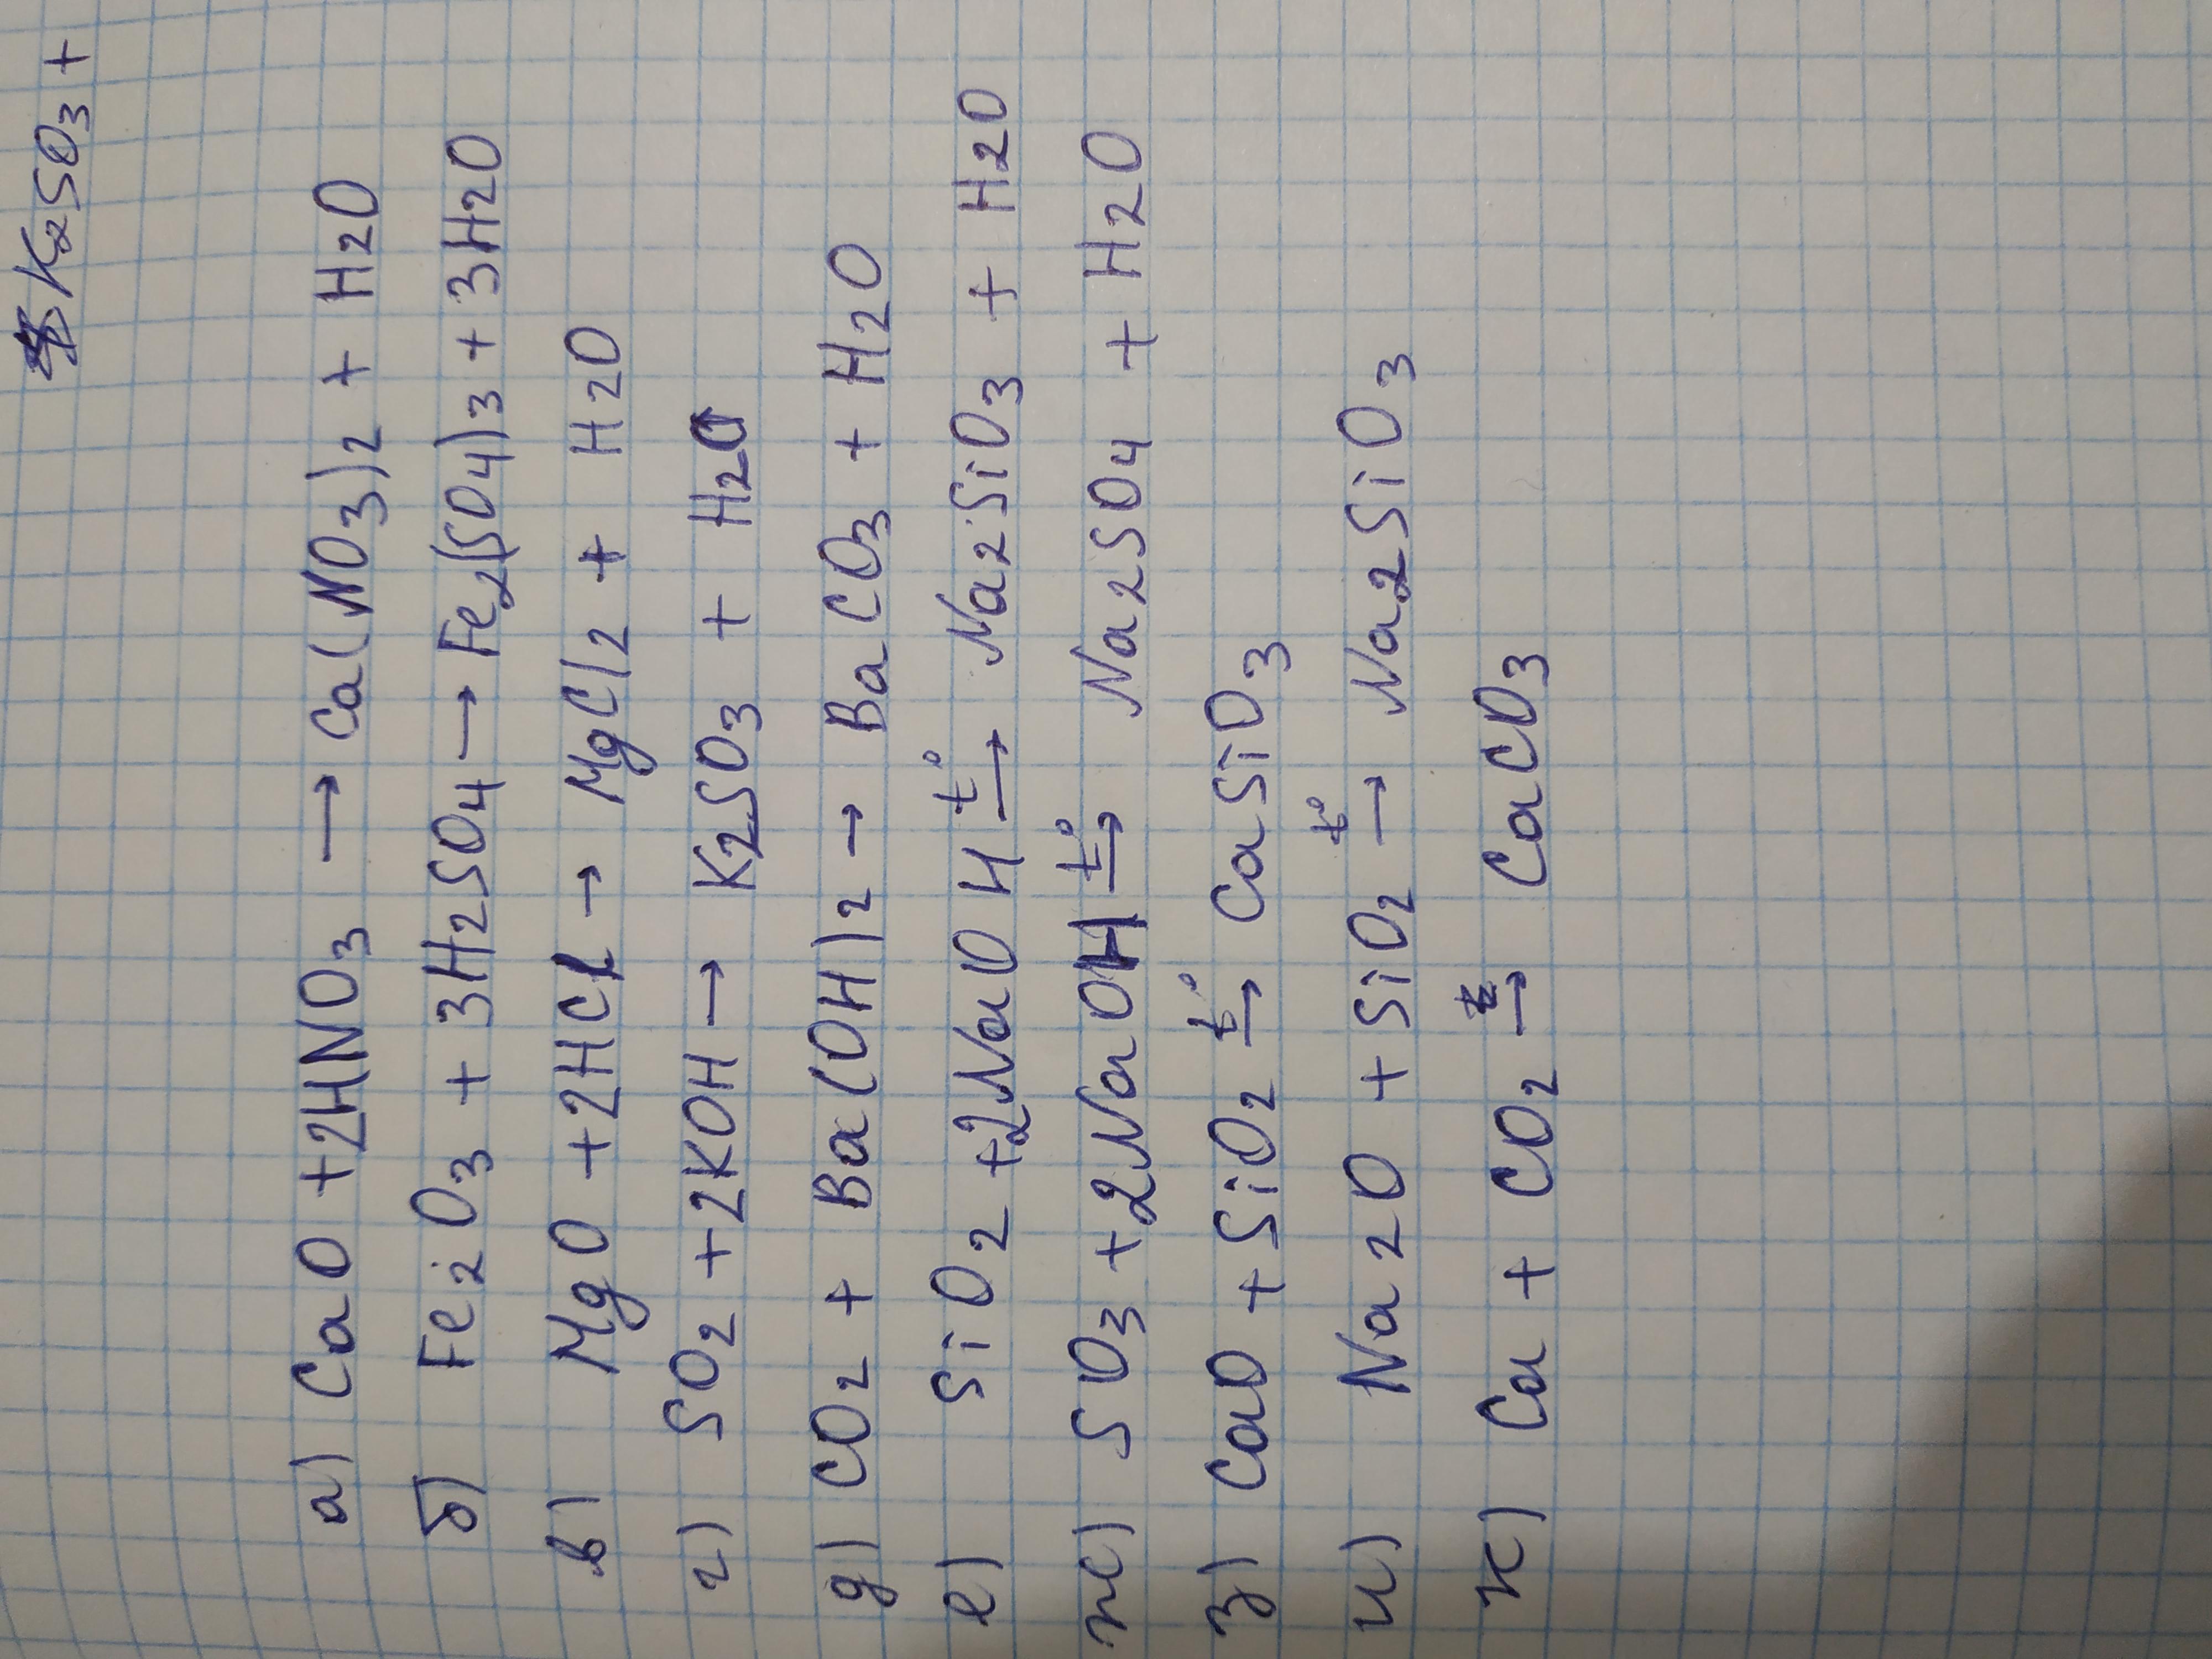 K2SO3 +
а) CaO + 2HNO3 → Ca(NO3)2 + H2O
б) Fe2O3 + 3H2SO4 → Fe2(SO4)3 + 3H2O
в) MgO + 2HCl → MgCl2 + H2O
г) SO2 + 2KOH → K2SO3 + H2O
д) CO2 + Ba(OH)2 → BaCO3 + H2O
е) SiO2 + 2NaOH t°→ Na2SiO3 + H2O
ж) SO3 + 2NaOH t°→ Na2SO4 + H2O
з) CaO + SiO2 t°→ CaSiO3
и) Na2O + SiO2 t°→ Na2SiO3
к) Ca + CO2 → CaCO3